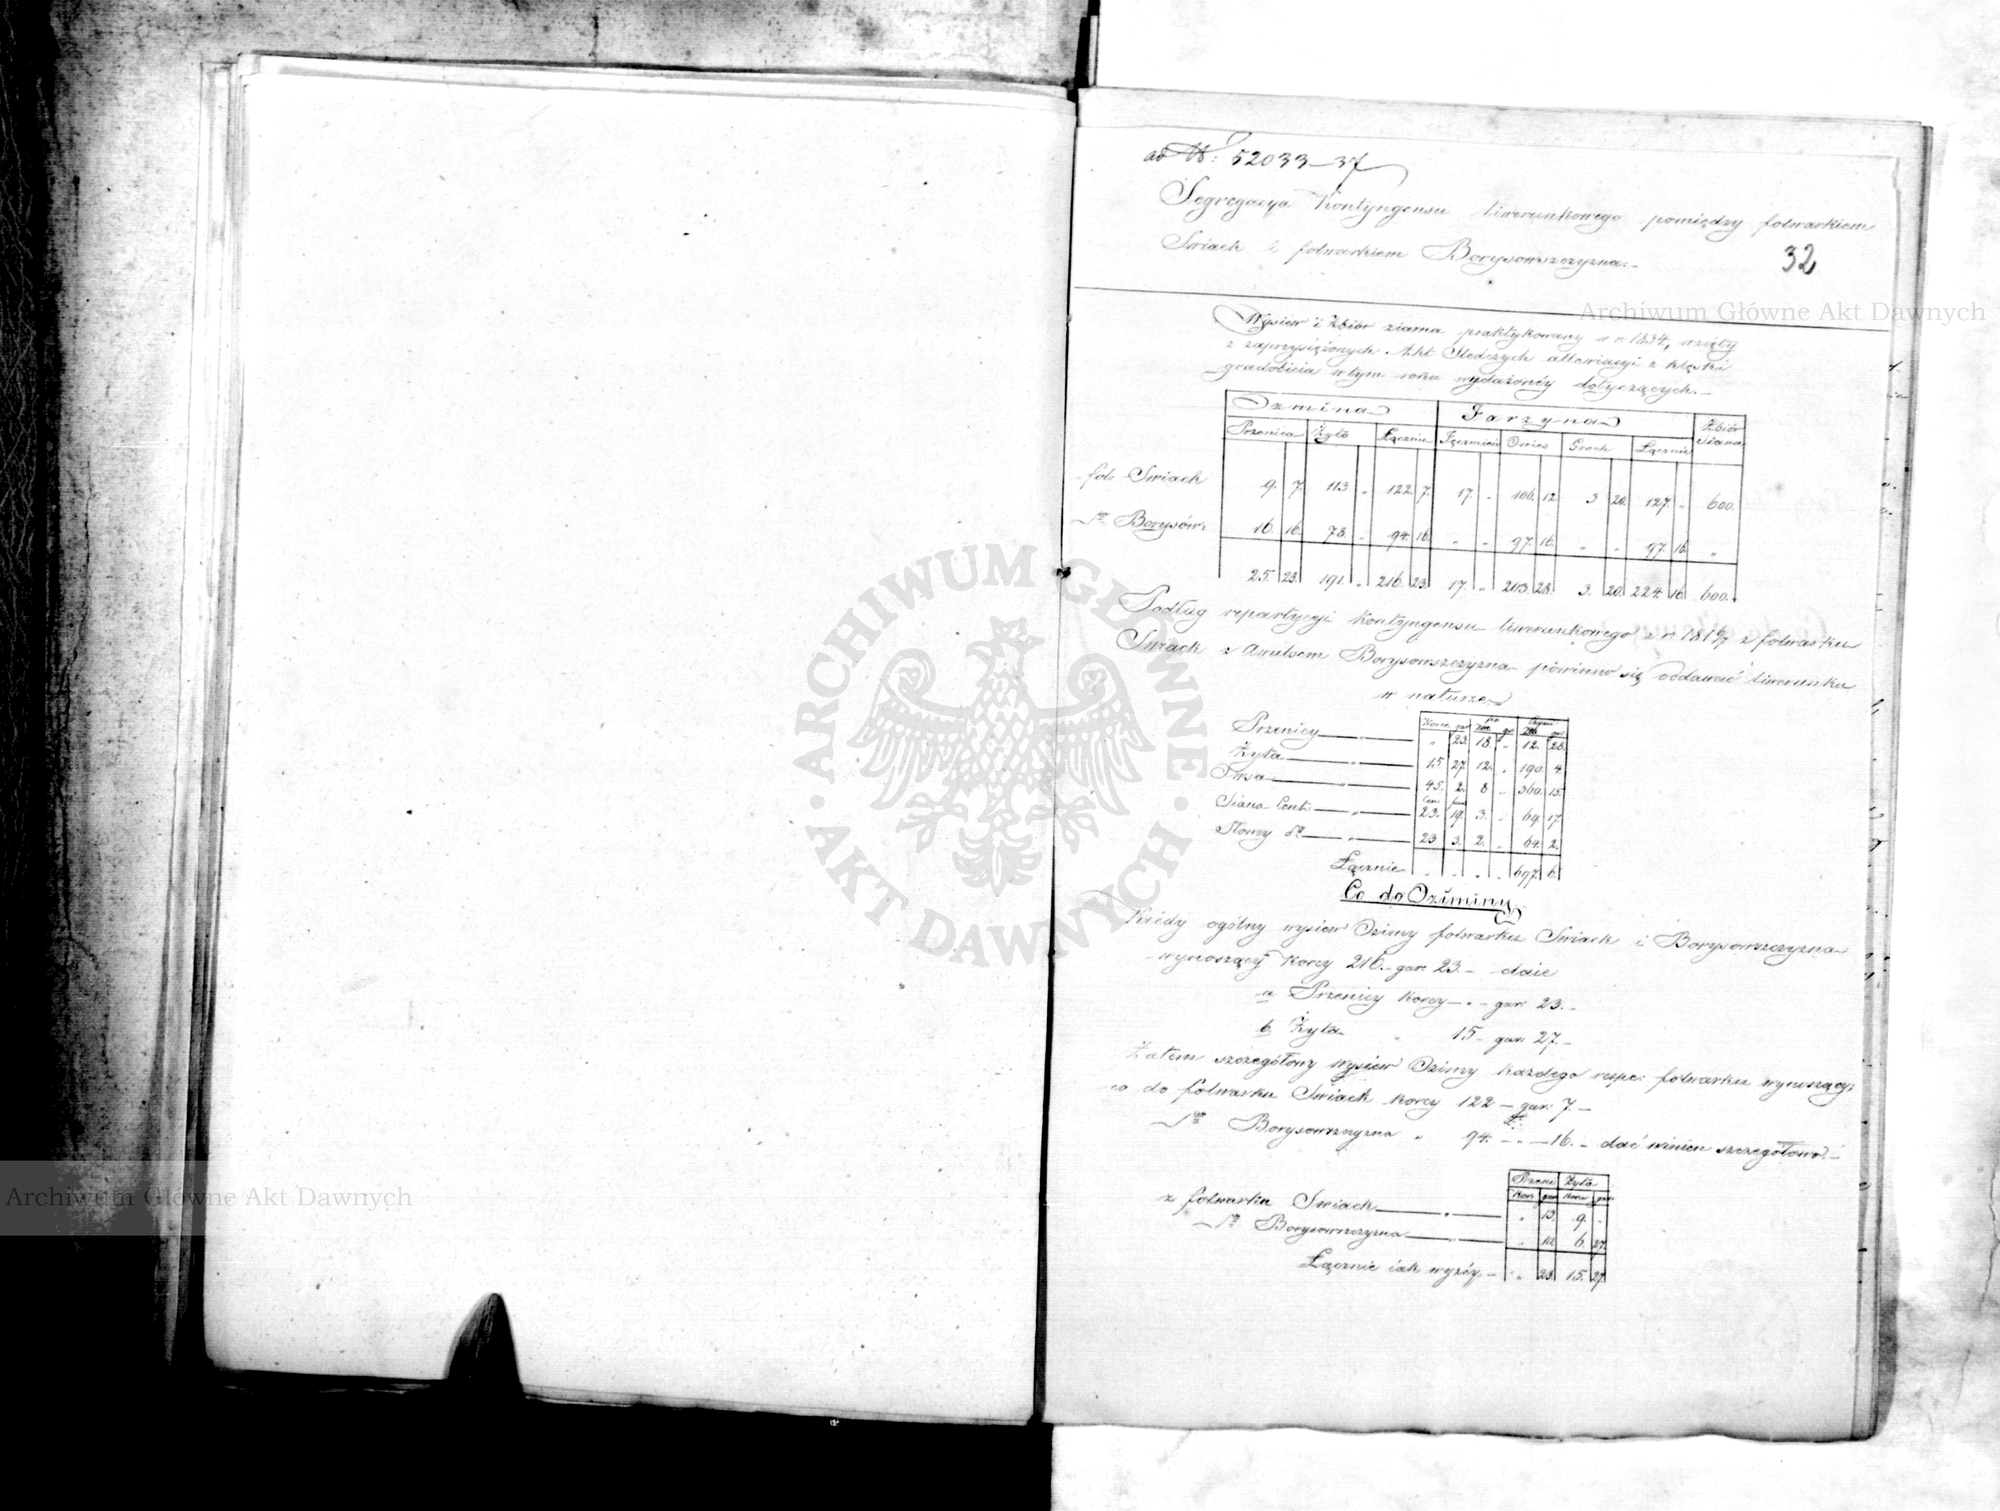 ad N: 52033-37
Segregacya Kontyngensu liwerunkowego pomiędzy folwarkiem
Swiack i folwarkiem Borysowszczyzna.-
32
Archiwum Główne Akt Dawnych
Wysiew i Zbiór ziarna praktykowany w r. 1834, wzięty
z zaprzysiężonych Akt Śledczych allewiacyi z klęski
gradobicia w tym roku wydażonéy dotyczących.-
Ozmina Jarzyna Zbiór Siana
Przenica Żyto Łącznie Jęczmień Owies Groch Łącznie
fol: Swiack 9. 7. 113 „ 122. 7. 17. „ 106. 12. 3 20. 127. „ 600.
Borysów: 16. 16. 78. „ 94. 16. „ „ 97. 16. „ „ 97. 16. „
25. 23. 191. „ 216. 23. 17. „ 203. 28. 3. 20. 224. 16. 600.
Podług repartycyi Kontyngensu liwerunkowego z r. 1816/7 z folwarku
Swiack z Awulsem Borysowszczyzna powinno się oddawać liwerunku
w naturze
Korce gar po Złp gr Czyni Złp gr
Przenicy „ „ 23. 18. „ 12. 28.
Żyta „ 15. 27. 12. „ 190. 4.
Owsa „ 45. 2. 8 „ 360. 15.
Cen. fun
Siana Cent. „ 23. 19. 3. „ 69. 17.
Słomy do „ 23 3. 2. „ 64. 2.
Łącznie „ „ „ „ 697. 6.
Co do Oziminy
Kiedy ogólny wysiew Ozimy folwarku Swiack i Borysowszczyzna
wynoszący Korcy 216.- gar. 23.- daie
a Przenicy Korcy - „ - gar: 23.-
b. Żyta „ 15- gar: 27.-
Zatem szczegółowy wysiew Ozimy każdego respe: folwarku wynoszący:
co do folwarku Swiack korcy 122 - gar: 7.-
Borysowszczyzna „ 94. - „ - 16. - dać winien szczegółowo:-
Przeni Żyta
Kor gar Korc gar
z folwarku Swiack „ „ 13. 9. -
Borysowszczyzna „ „ 10. 6. 27.
Łącznie iak wyżéy - „ 23. 15. 27.
ARCHIWUM GŁÓWNE AKT DAWNYCH
Archiwum Główne Akt Dawnych